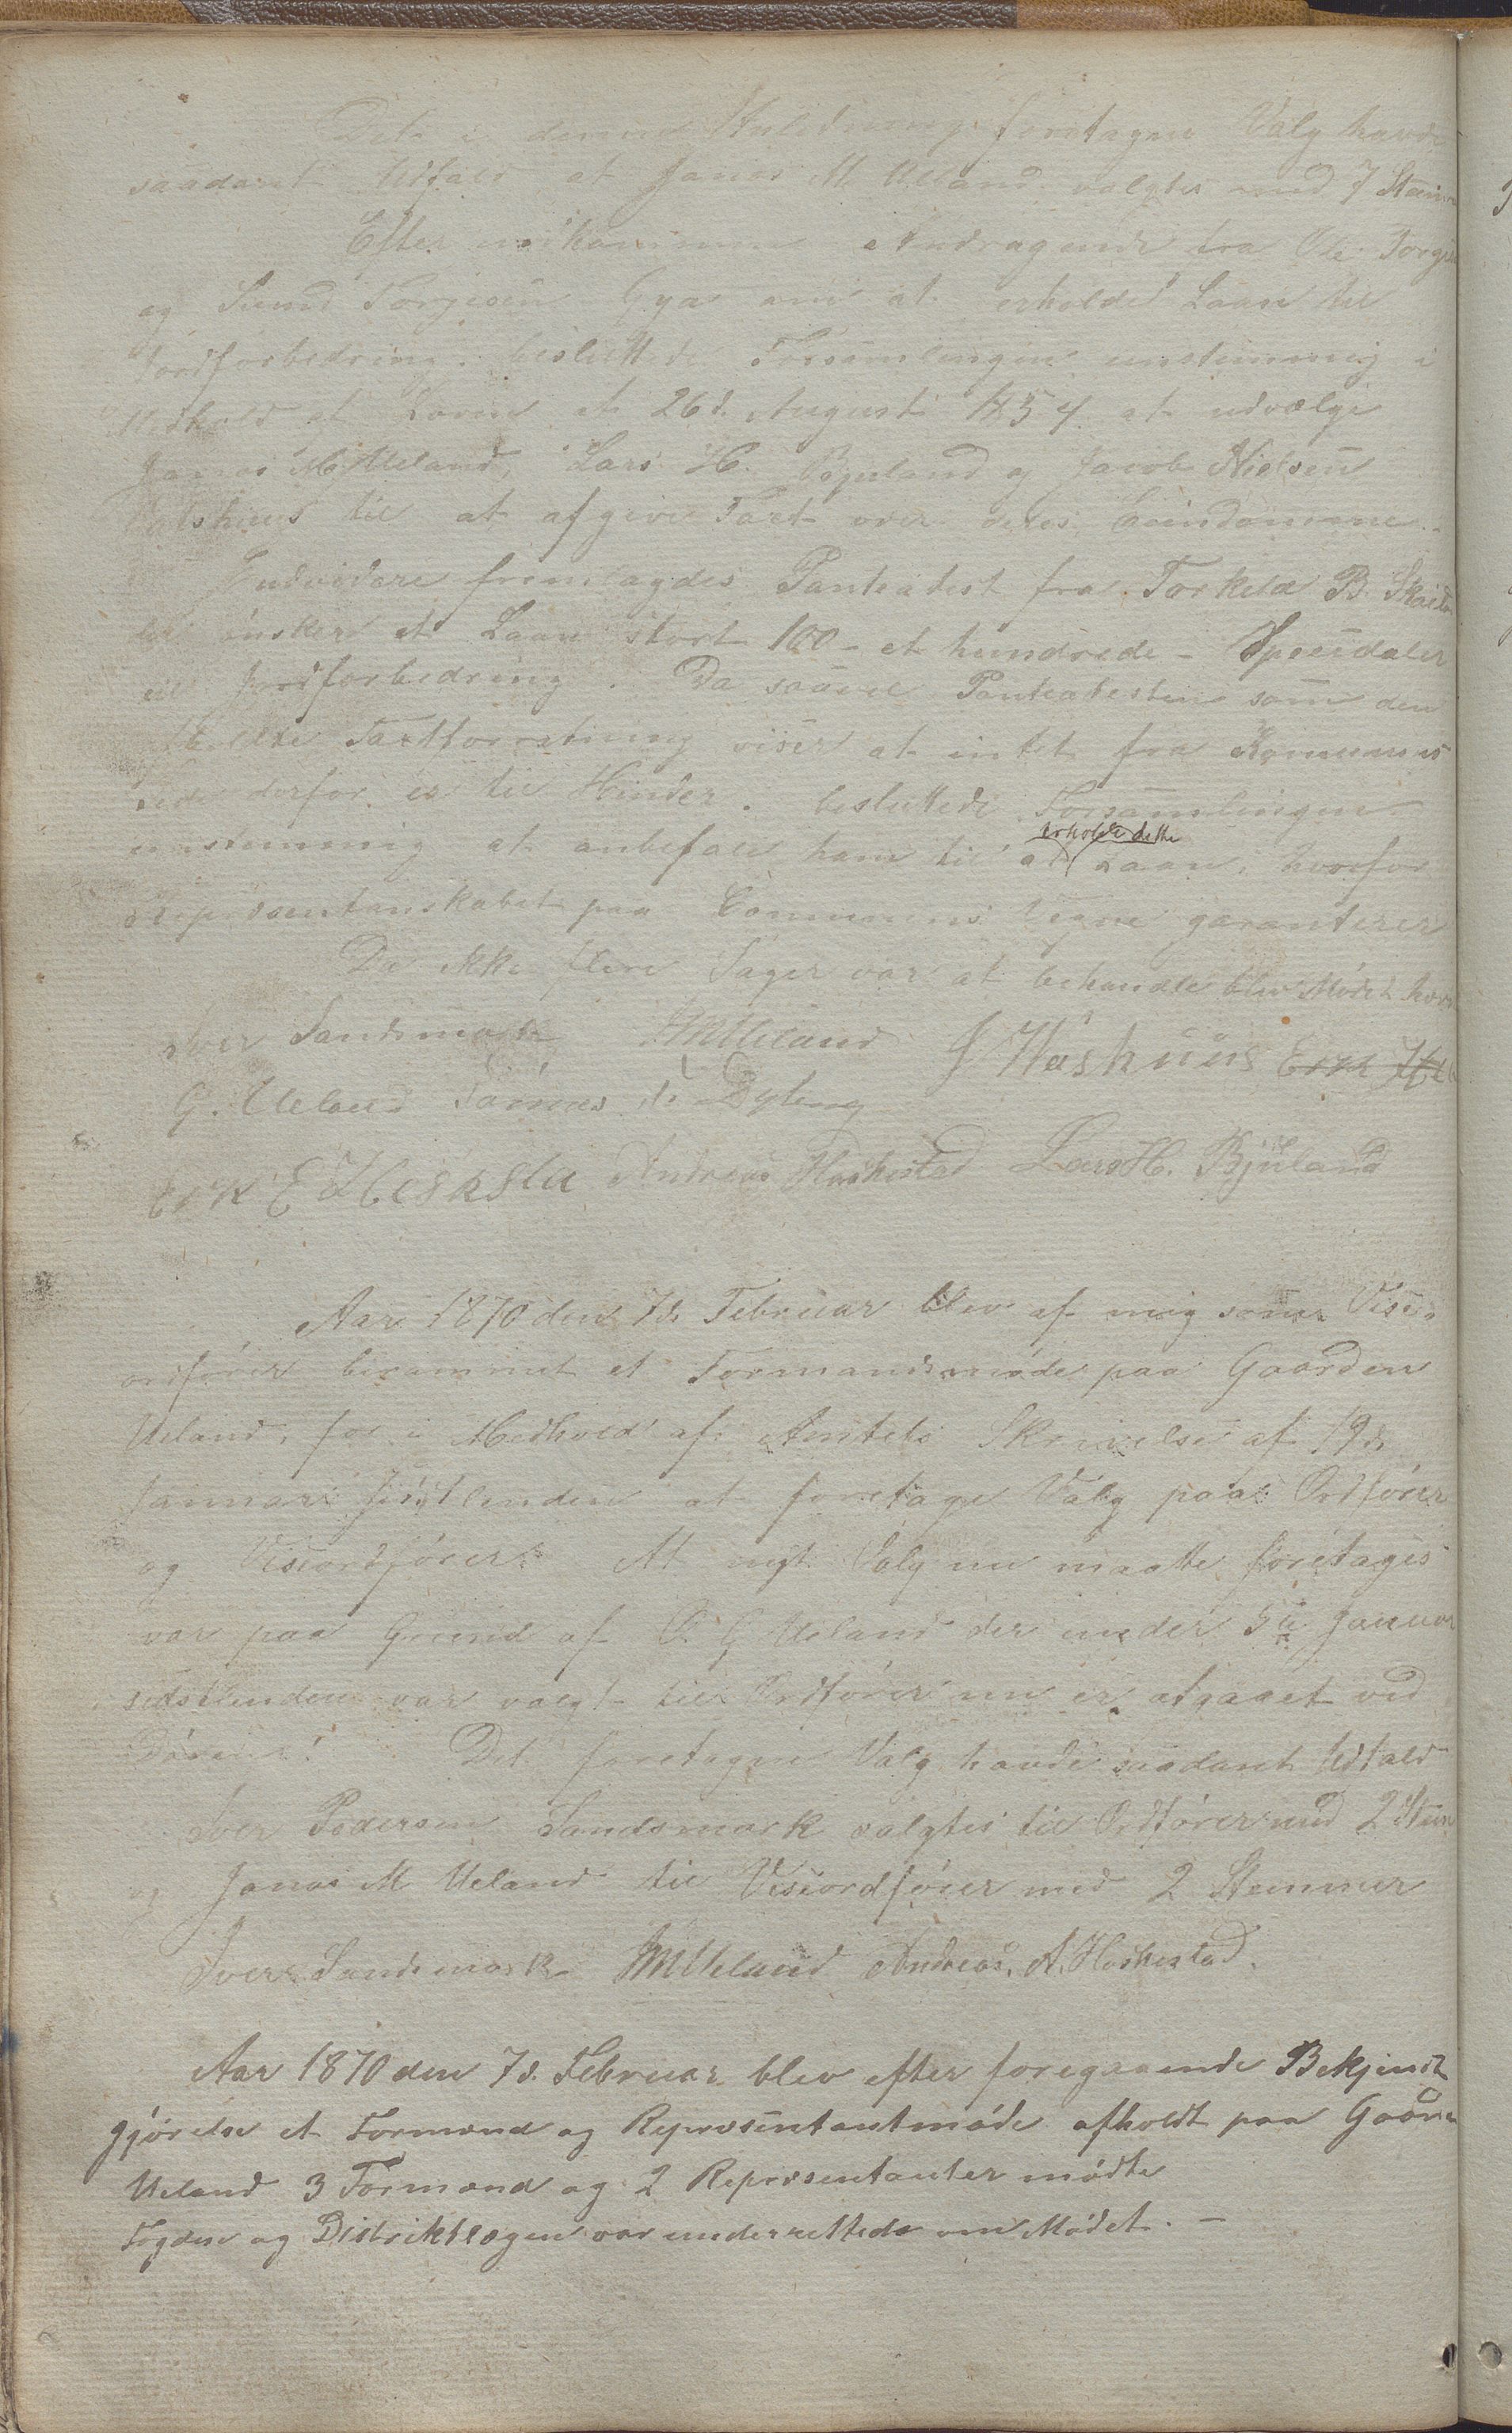 Det i denne Anledning foretagne Valg havde
saadant Udfald at Jonas M. Ueland valgtes med 7 Stem
Efter indkommne Andragende fra Ole Torgie
og Svend Torgiesen Gya om at erholde Laan til
Jordforbedring, besluttede Forsamlingen enstemmig i
Medhold af Loven af 26d. August 1854 at udvælge
Jonas M Ueland, Lars H. Bjuland og Jacob Nielsen
til at afgive Taxt over deres Eiendomme.
Endvidere fremlagdes Panteatest fra Torkeld B.
der ønsker et Laan stort 100 - et hundrede - Speciedaler
til Jordforbedring. Da saavel Panteatesten som den
afholdte Taxtforretning viser at intet fra Kommunens
Side derfor er til Hinder, besluttede Forsamlingen
enstemmig at anbefale ham til at erholde dette Laan, hvorfor
Repræsentanskabet paa Communens Vegne garanterer
Da ikke flere Sager var at behandle blev Mødet hæv
Iver Sandsmark JMUeland J Washuus Erik
G. Ueland Tomas Dybing
Erik E Hlesksta Andreas Haskestad Lars H. Bjuland
Aar 1870 den 7d. Februar blev af mig som Vise-
ordfører berammet et Formandsmøde paa Gaarden
Ueland, for i Medhold af Amtets Skrivelse af 19d.
Januar sidstlenden at foretage Valg paa Ordfører
og Viseordfører. At nyt Valg nu maatte foretages
var paa Grund af O. G Ueland der under 5te Januar
sidstlenden var valgt til Ordfører nu er afgaaet ved
Døden. Det foretagne Valg havde saadant Udfald
Iver Pedersen Sandsmark valgtes til Ordfører med 2 Stem
og Jonas M Ueland til Viseordfører med 2 Stemmer
Iver Sandsmark JMUeland Andreas. A. Haskestad.
Aar 1870 den 7d. Februar blev efter foregaaende Bekjendt
gjørelse et Formænd og Repræsentantmøde afholdt paa Gaarden
Ueland 3 Formænd og 2 Repræsentanter mødte
Fogden og Distriktlægen var underrettede om Mødet. -